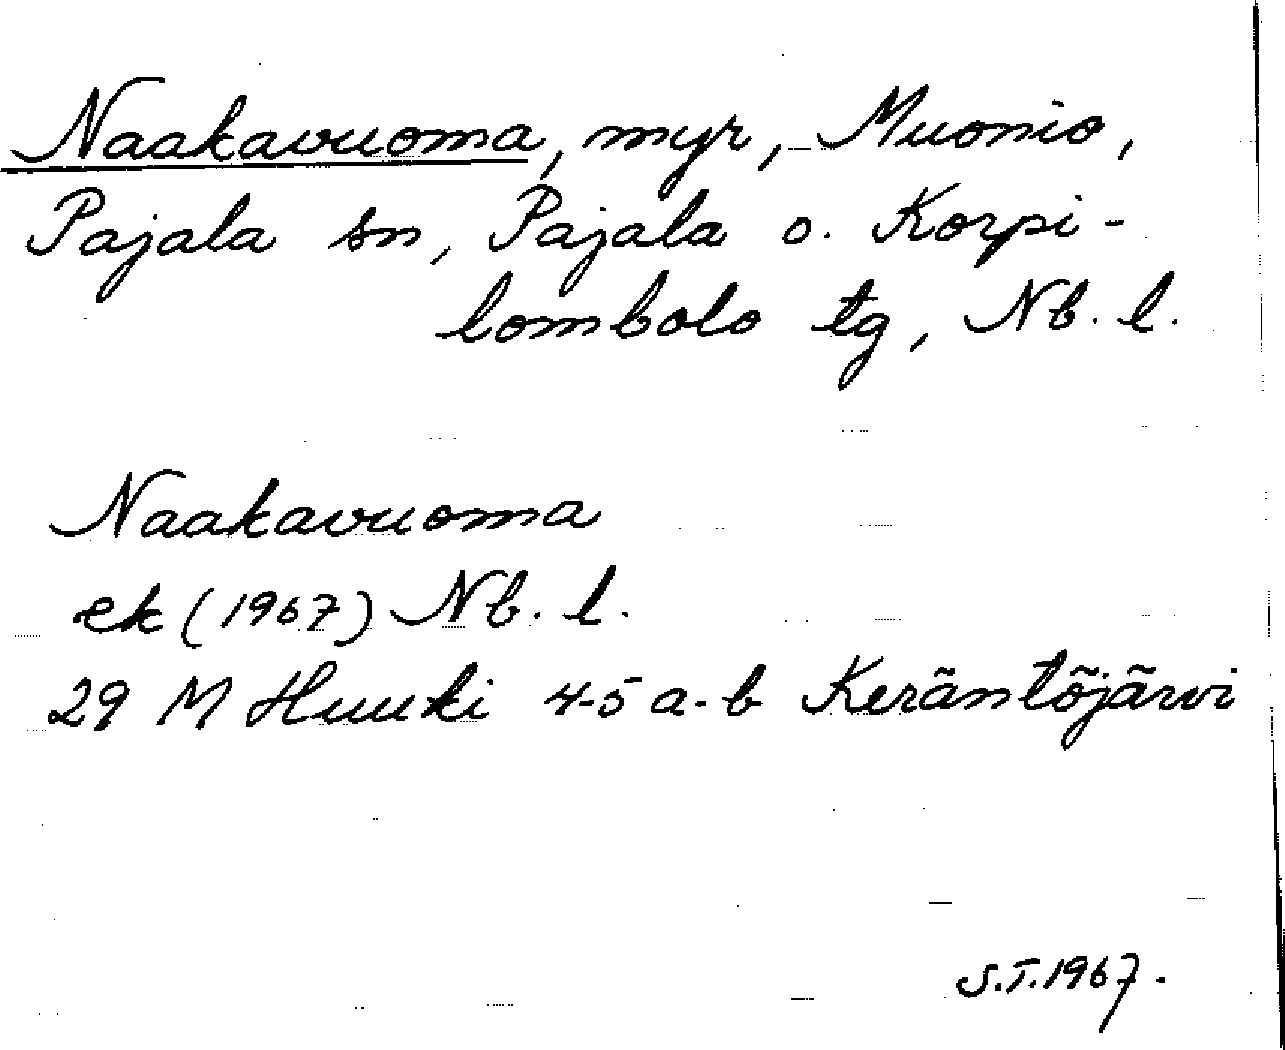 Naakavuoma, myr, Muonio,
Pajala sn, Pajala o. Korpi-
lombolo tg, Nb. l.
Naakavuoma
ek (1967) Nb. l.
29 M Huuki 4-5 a-b Keräntöjärvi
S.T. 1967.